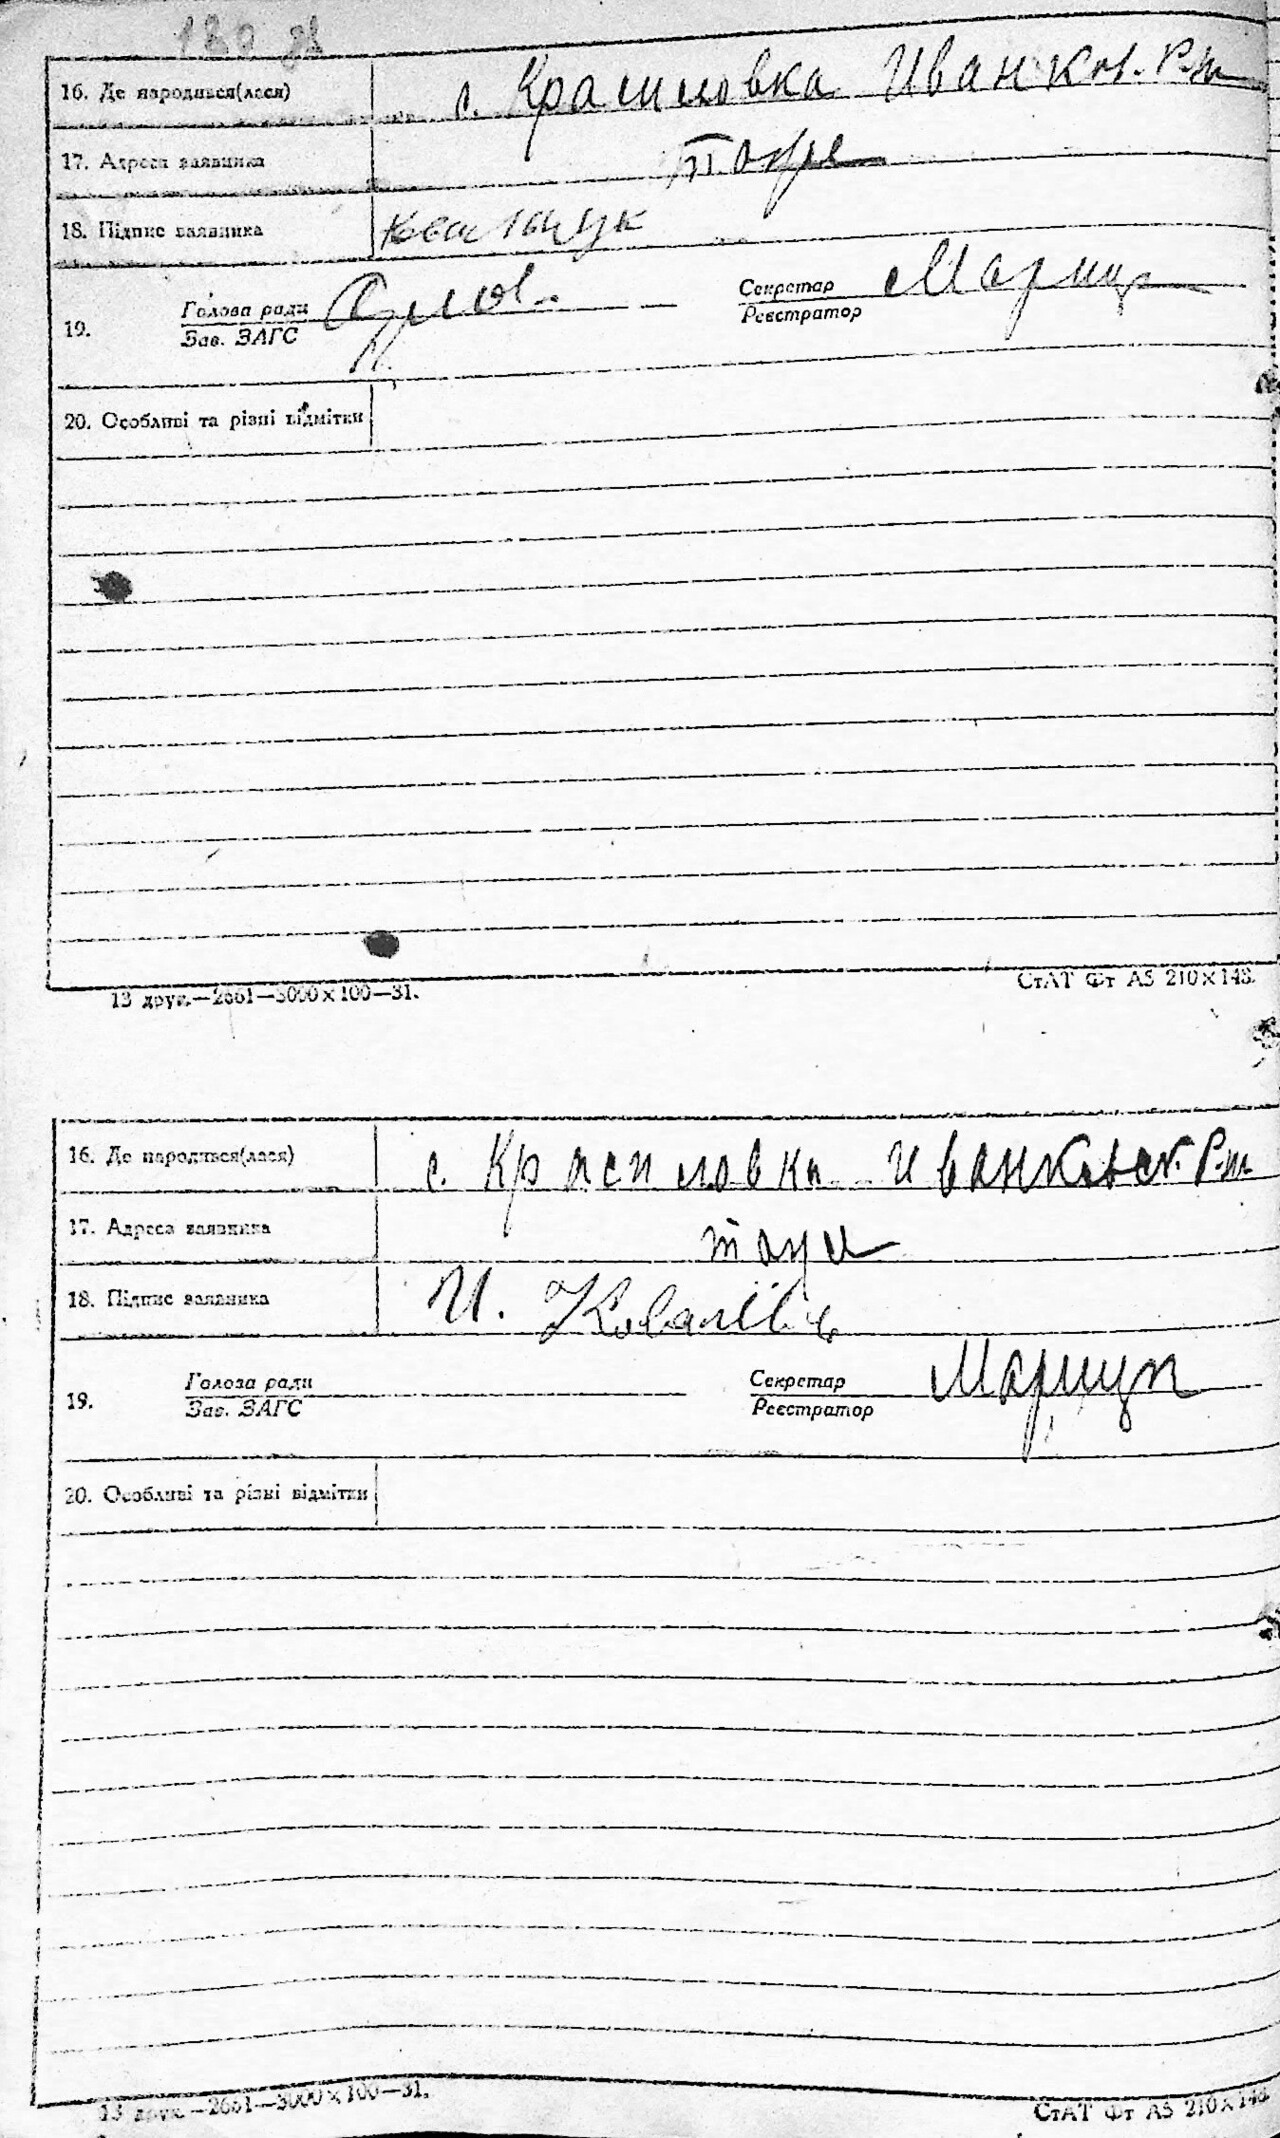 16. Де народився(лася) с. Красиловка Иванков. Р-н
17. Адреса заявника
18. Підпис заявника
19. Голова ради Секретар Марчук
Зав. ЗАГС Реєстратор
20. Особливі та різні відмітки
13 друк.—2661—3000×100—31. СтАТ Фт А5 210×148.
16. Де народився(лася) с. Красиловка Иванковск. Р-н.
17. Адреса заявника
18. Підпис заявника И.
19. Голова ради Секретар Марчук
Зав. ЗАГС Реєстратор
20. Особливі та різні відмітки
13 друк.—2661—3000×100—31. СтАТ Фт А5 210×148